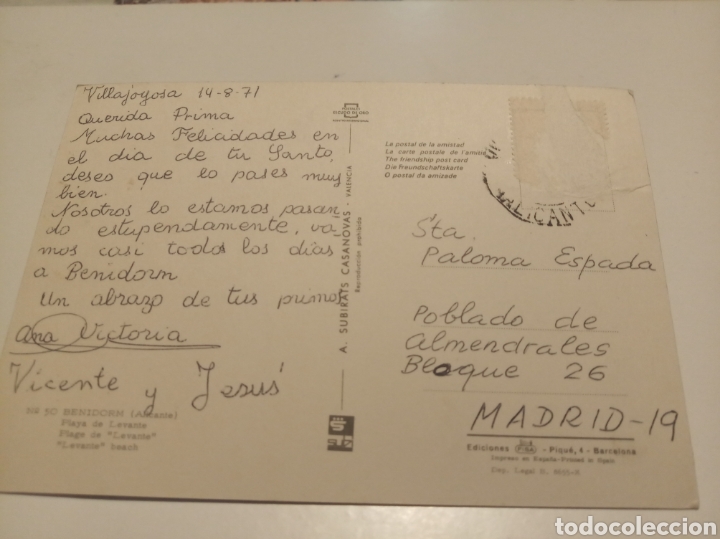 Villajoyosa 14-8-71
Querida Prima
Muchas Felicidades en
el dia de tu Santo,
deseo que lo pases muy
bien.
Nosotros lo estamos pasan
do estupendamente, va
mos casi todos los días
a Benidorm
Un abrazo de tus primos
Ana Victoria
Vicente y Jesús
Nº 50 BENIDORM (Alicante)
Playa de Levante
Plage de "Levante"
"Levante" beach
A. SUBIRATS CASANOVAS - VALENCIA
Reproducción prohibida
La postal de la amistad
La carte postale de l'amitié
The friendship post card
Die Freundschaftskarte
O postal da amizade
ALICANTE
Sta.
Paloma Espada
Poblado de
Almendrales
Bloque 26
MADRID-19
Ediciones - Piqué, 4 - Barcelona
Impreso en España-Printed in Spain
Dep. Legal B.
todocoleccion